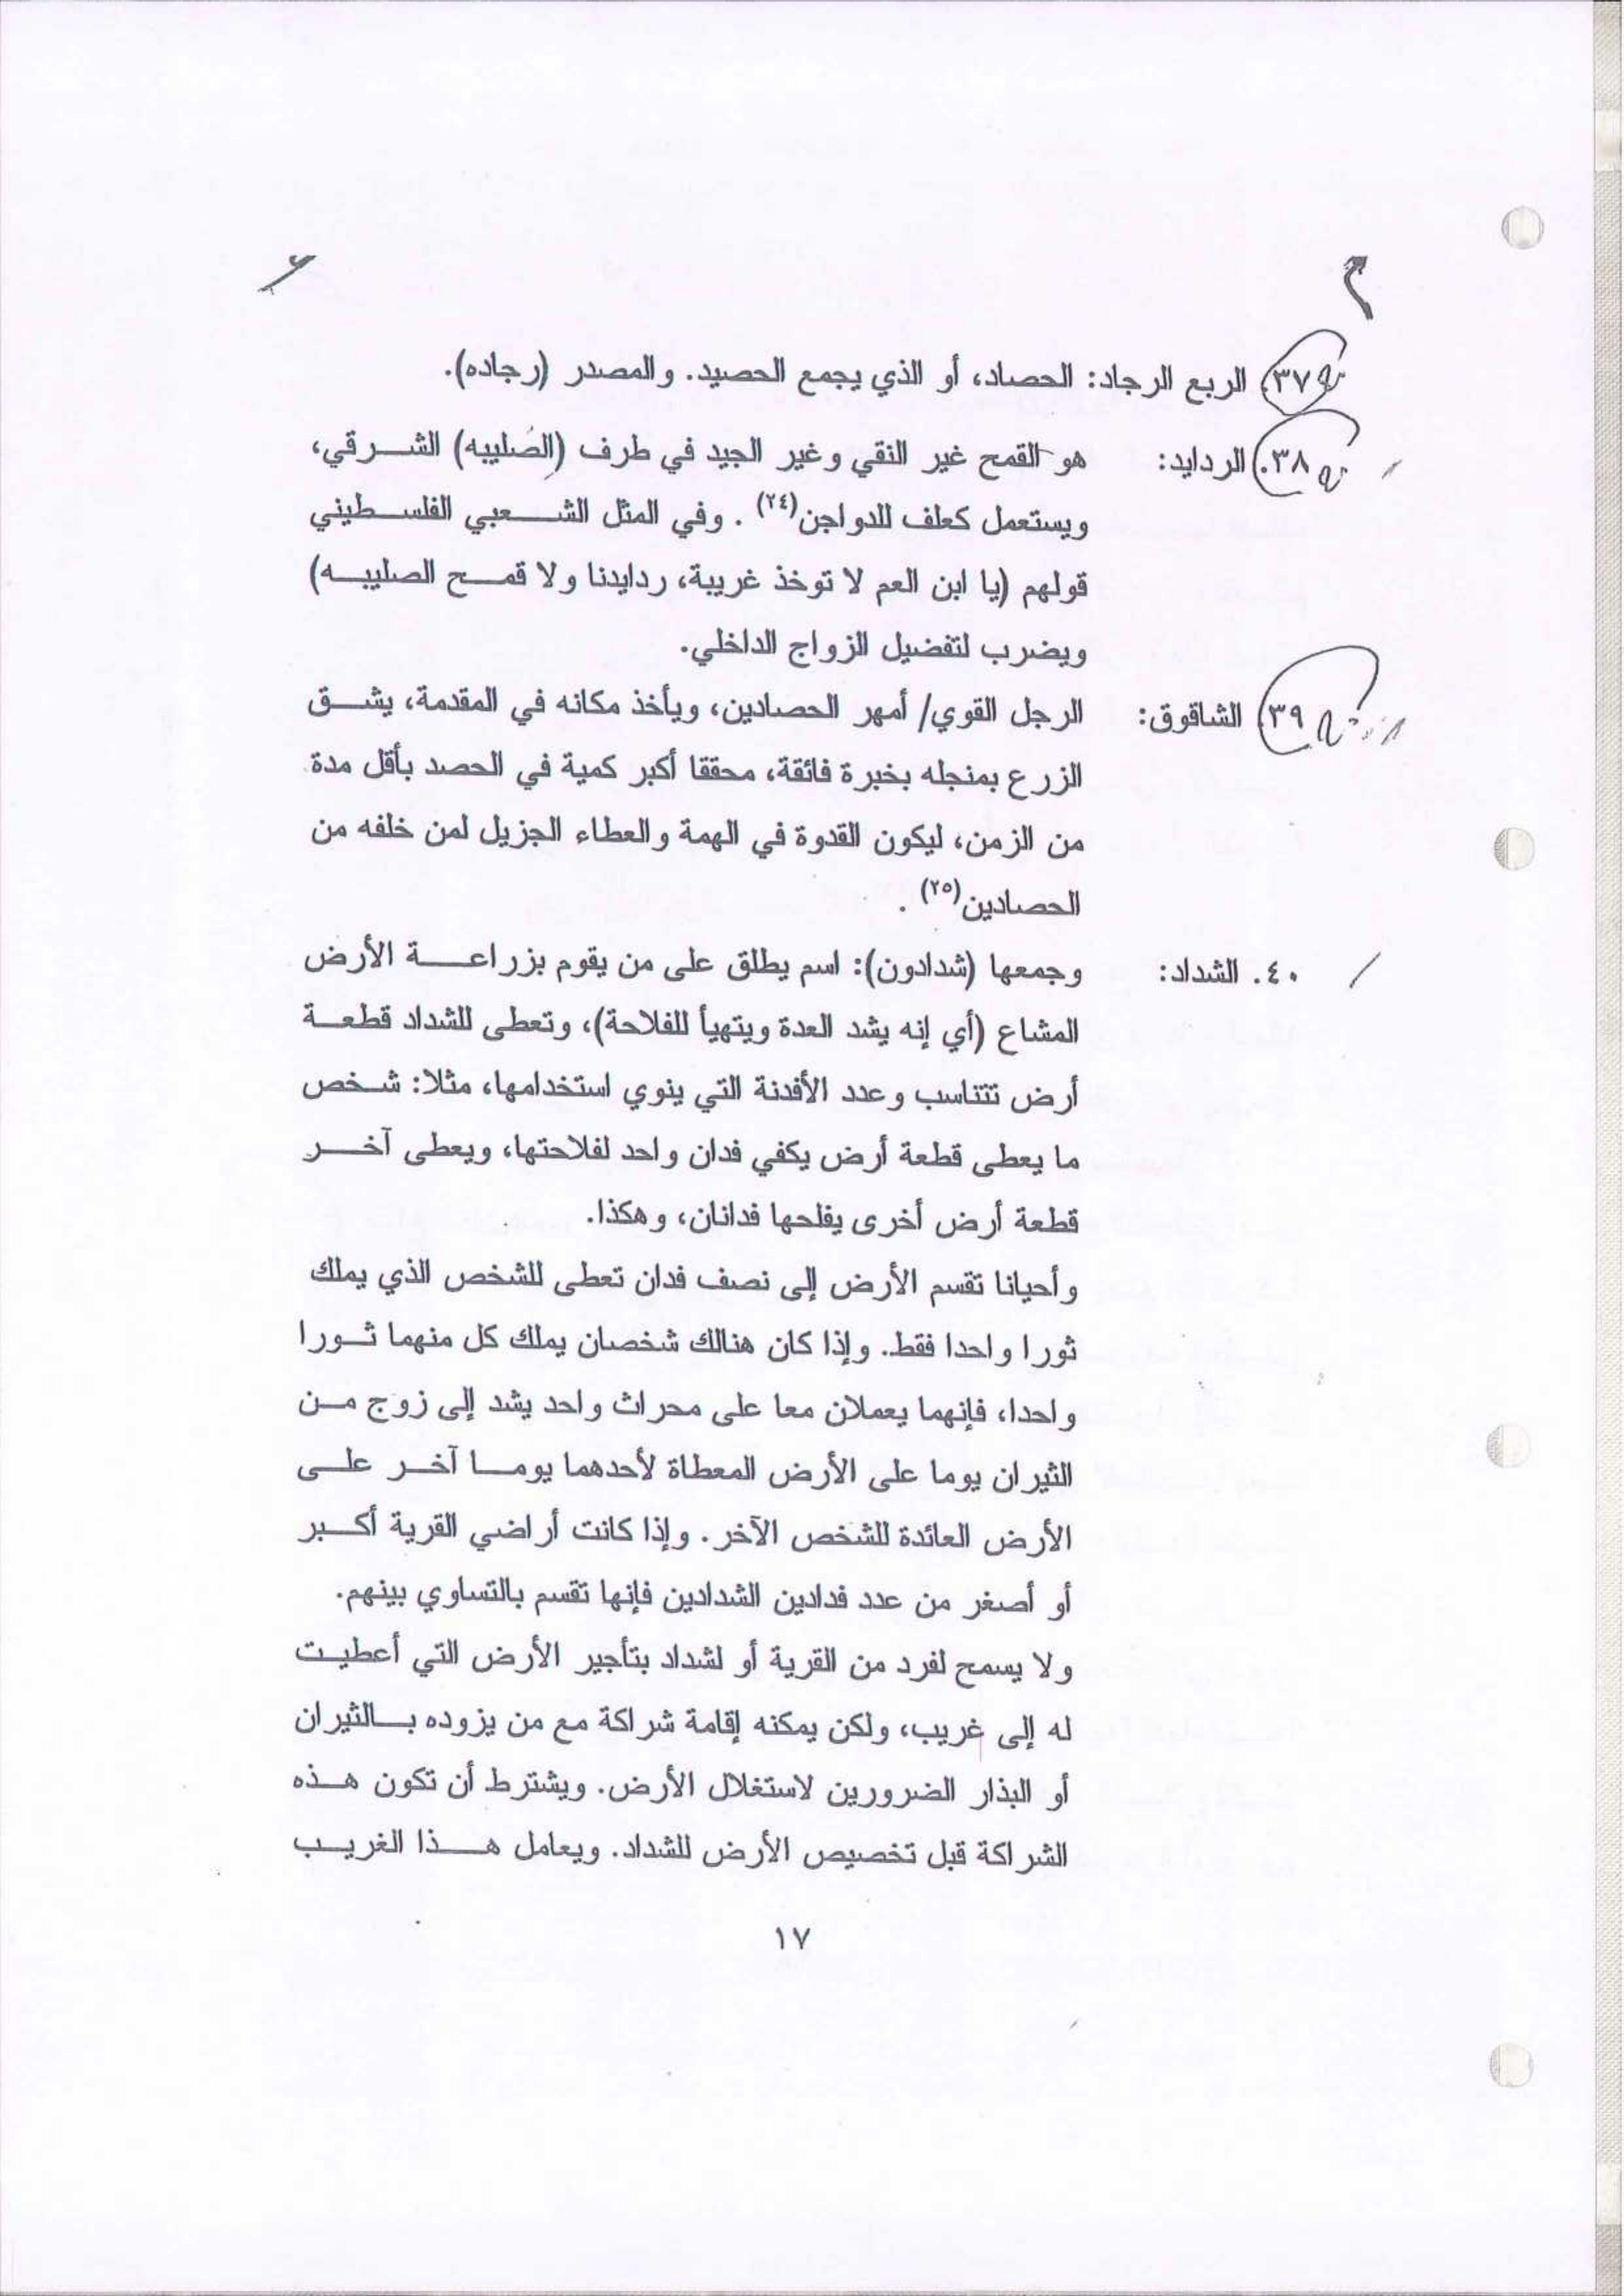 ٣٧. الربع الرجاد: الحصاد، أو الذي يجمع الحصيد. والمصدر (رجاده).
٣٨. الردايد: هو القمح غير النقي وغير الجيد في طرف (الصُليبِه) الشرقي،
ويستعمل كعلف للدواجن(٢٤) . وفي المثل الشعبي الفلسطيني
قولهم (يا ابن العم لا توخذ غريبة، ردايدنا ولا قمح الصليبه)
ويضرب لتفضيل الزواج الداخلي.
٣٩) الشاقوق: الرجل القوي/ أمهر الحصادين، ويأخذ مكانه في المقدمة، يشق
الزرع بمنجله بخبرة فائقة، محققا أكبر كمية في الحصد بأقل مدة
من الزمن، ليكون القدوة في الهمة والعطاء الجزيل لمن خلفه من
الحصادين(٢٥) .
٤٠. الشداد: وجمعها (شدادون): اسم يطلق على من يقوم بزراعة الأرض
المشاع (أي إنه يشد العدة ويتهيأ للفلاحة)، وتعطى للشداد قطعة
أرض تتناسب وعدد الأفدنة التي ينوي استخدامها، مثلا: شخص
ما يعطى قطعة أرض يكفي فدان واحد لفلاحتها، ويعطى آخر
قطعة أرض أخرى يفلحها فدانان، وهكذا.
وأحيانا تقسم الأرض إلى نصف فدان تعطى للشخص الذي يملك
ثورا واحدا فقط. وإذا كان هنالك شخصان يملك كل منهما ثورا
واحدا، فإنهما يعملان معا على محراث واحد يشد إلى زوج من
الثيران يوما على الأرض المعطاة لأحدهما يوما آخر على
الأرض العائدة للشخص الآخر. وإذا كانت أراضي القرية أكبر
أو أصغر من عدد فدادين الشدادين فإنها تقسم بالتساوي بينهم.
ولا يسمح لفرد من القرية أو لشداد بتأجير الأرض التي أعطيت
له إلى غريب، ولكن يمكنه إقامة شراكة مع من يزوده بالثيران
أو البذار الضرورين لاستغلال الأرض. ويشترط أن تكون هذه
الشراكة قبل تخصيص الأرض للشداد. ويعامل هذا الغريب
١٧